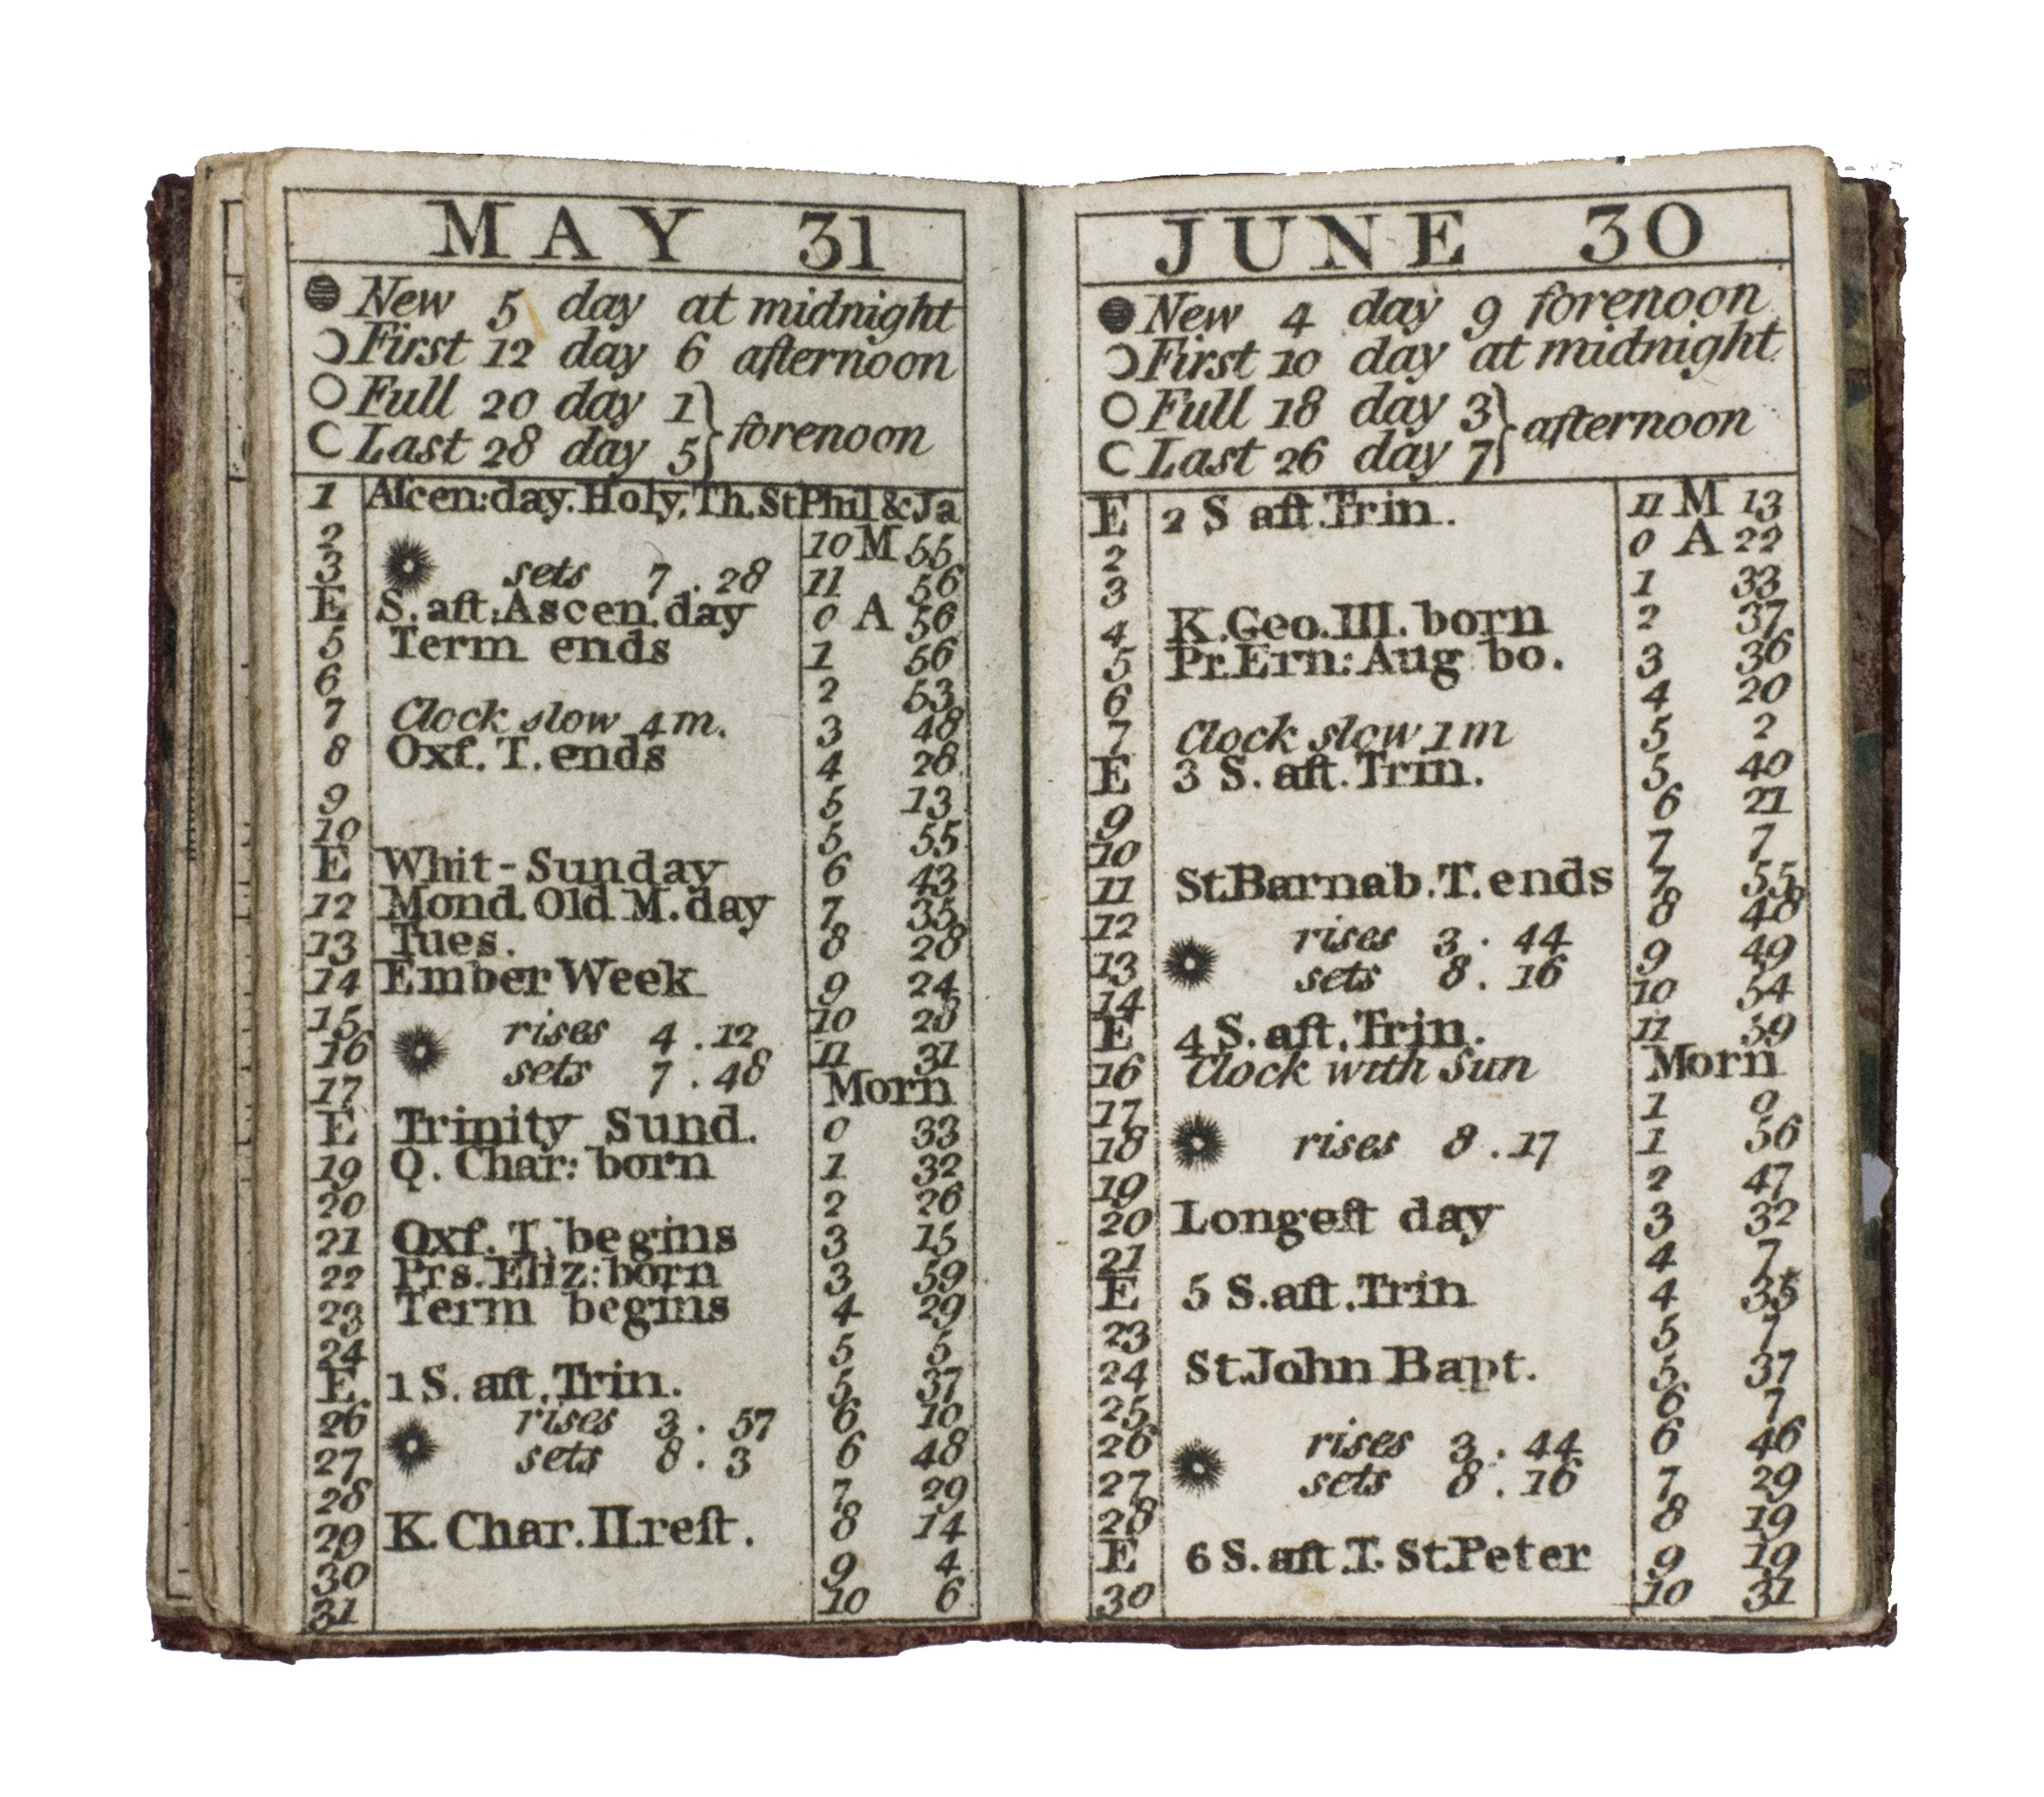 MAY 31
New 5 day at midnight
First 12 day 6 afternoon
Full 20 day 1
Last 28 day 5 } forenoon
1 Aſcen:day.Holy.Th.St Phil & Ja
2 10 M 55
3 sets 7 . 28 11 56
E S. aft.Ascen.day 0 A 56
5 Term ends 1 56
6 2 53
7 Clock slow 4 m. 3 48
8 Oxf. T. ends 4 28
9 5 13
10 5 55
E Whit-Sunday 6 43
12 Mond. Old M. day 7 35
13 Tues. 8 28
14 Ember Week 9 24
15 rises 4 . 12 10 28
16 sets 7 . 48 11 31
17 Morn
E Trinity Sund. 0 33
19 Q. Char: born 1 32
20 2 26
21 Oxf. T. begins 3 15
22 Prs. Eliz: born 3 59
23 Term begins 4 29
24 5 5
E 1 S. aft. Trin. 5 37
26 rises 3 . 57 6 10
27 sets 8 . 3 6 48
28 7 29
29 K. Char. II. reſt. 8 14
30 9 4
31 10 6
JUNE 30
New 4 day 9 forenoon
First 10 day at midnight
Full 18 day 3
Last 26 day 7 } afternoon
E 2 S aft. Trin. 11 M 13
2 0 A 22
3 1 33
4 K. Geo. III. born 2 37
5 Pr. Ern: Aug bo. 3 36
6 4 20
7 Clock slow 1 m 5 2
E 3 S. aft. Trin. 5 40
9 6 21
10 7 7
11 St. Barnab. T. ends 7 55
12 rises 3 . 44 8 48
13 sets 8 . 16 9 49
14 10 54
E 4 S. aft. Trin. 11 59
16 Clock with Sun Morn
17 1 0
18 rises 8 . 17 1 56
19 2 47
20 Longeſt day 3 32
21 4 7
E 5 S. aft. Trin 4 35
23 5 7
24 St. John Bapt. 5 37
25 6 7
26 rises 3 . 44 6 46
27 sets 8 . 16 7 29
28 8 19
E 6 S. aft. T. St. Peter 9 19
30 10 31